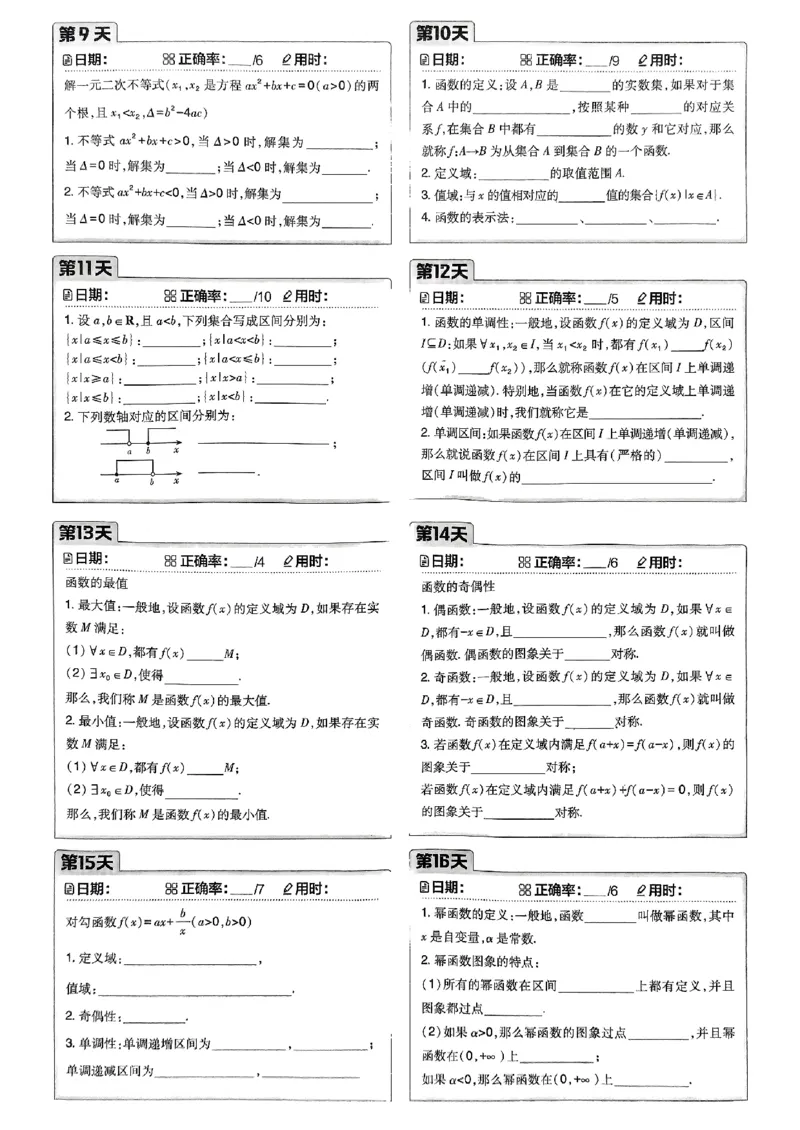 第9天
日期： 正确率：___/6 用时：
解一元二次不等式(x₁,x₂ 是方程 ax²+bx+c=0(a>0)的两
个根,且 x₁<x₂,Δ=b²-4ac)
1. 不等式 ax²+bx+c>0,当 Δ>0 时,解集为__________;
当 Δ=0 时,解集为________;当 Δ<0 时,解集为_______.
2. 不等式 ax²+bx+c<0,当 Δ>0 时,解集为______________;
当 Δ=0 时,解集为________;当 Δ<0 时,解集为________.
第10天
日期： 正确率：___/9 用时：
1. 函数的定义:设 A,B 是________的实数集,如果对于集
合 A 中的______________,按照某种________的对应关
系 f,在集合 B 中都有___________的数 y 和它对应,那么
就称 f:A→B 为从集合 A 到集合 B 的一个函数.
2. 定义域:__________的取值范围 A.
3. 值域:与 x 的值相对应的_______值的集合{f(x)|x∈A}.
4. 函数的表示法:_________、_________、_________.
第11天
日期： 正确率：___/10 用时：
1. 设 a,b∈R,且 a<b,下列集合写成区间分别为:
{x|a≤x≤b}:________;{x|a<x<b}:________;
{x|a≤x<b}:________;{x|a<x≤b}:________;
{x|x≥a}:__________;{x|x>a}:__________;
{x|x≤b}:__________;{x|x<b}:__________.
2. 下列数轴对应的区间分别为:
a b x __________________;
a b x ________.
第12天
日期： 正确率：___/5 用时：
1. 函数的单调性:一般地,设函数 f(x)的定义域为 D,区间
I⊆D:如果∀x₁,x₂∈I,当 x₁<x₂ 时,都有 f(x₁)_____f(x₂)
(f(x₁)_____f(x₂)),那么就称函数 f(x)在区间 I 上单调递
增(单调递减). 特别地,当函数 f(x)在它的定义域上单调递
增(单调递减)时,我们就称它是________________.
2. 单调区间:如果函数 f(x)在区间 I 上单调递增(单调递减),
那么就说函数 f(x)在区间 I 上具有(严格的)_________,
区间 I 叫做 f(x)的___________________________.
第13天
日期： 正确率：___/4 用时：
函数的最值
1. 最大值:一般地,设函数 f(x)的定义域为 D,如果存在实
数 M 满足:
(1)∀x∈D,都有 f(x)_____M;
(2)∃x₀∈D,使得__________.
那么,我们称 M 是函数 f(x)的最大值.
2. 最小值:一般地,设函数 f(x)的定义域为 D,如果存在实
数 M 满足:
(1)∀x∈D,都有 f(x)_____M;
(2)∃x₀∈D,使得__________.
那么,我们称 M 是函数 f(x)的最小值.
第14天
日期： 正确率：___/6 用时：
函数的奇偶性
1. 偶函数:一般地,设函数 f(x)的定义域为 D,如果∀x∈
D,都有-x∈D,且_____________,那么函数 f(x)就叫做
偶函数. 偶函数的图象关于______对称.
2. 奇函数:一般地,设函数 f(x)的定义域为 D,如果∀x∈
D,都有-x∈D,且______________,那么函数 f(x)就叫做
奇函数. 奇函数的图象关于_______对称.
3. 若函数 f(x)在定义域内满足 f(a+x)=f(a-x),则 f(x)的
图象关于__________对称;
若函数 f(x)在定义域内满足 f(a+x)+f(a-x)=0,则 f(x)
的图象关于__________对称.
第15天
日期： 正确率：___/7 用时：
对勾函数 f(x)=ax+b/x(a>0,b>0)
1. 定义域:___________________,
值域:___________________________.
2. 奇偶性:_________.
3. 单调性:单调递增区间为__________,__________;
单调递减区间为______________,______________
第16天
日期： 正确率：___/6 用时：
1. 幂函数的定义:一般地,函数_______叫做幂函数,其中
x 是自变量,α 是常数.
2. 幂函数图象的特点:
(1)所有的幂函数在区间__________上都有定义,并且
图象都过点________.
(2)如果 α>0,那么幂函数的图象过点________,并且幂
函数在(0,+∞)上__________;
如果 α<0,那么幂函数在(0,+∞)上__________.